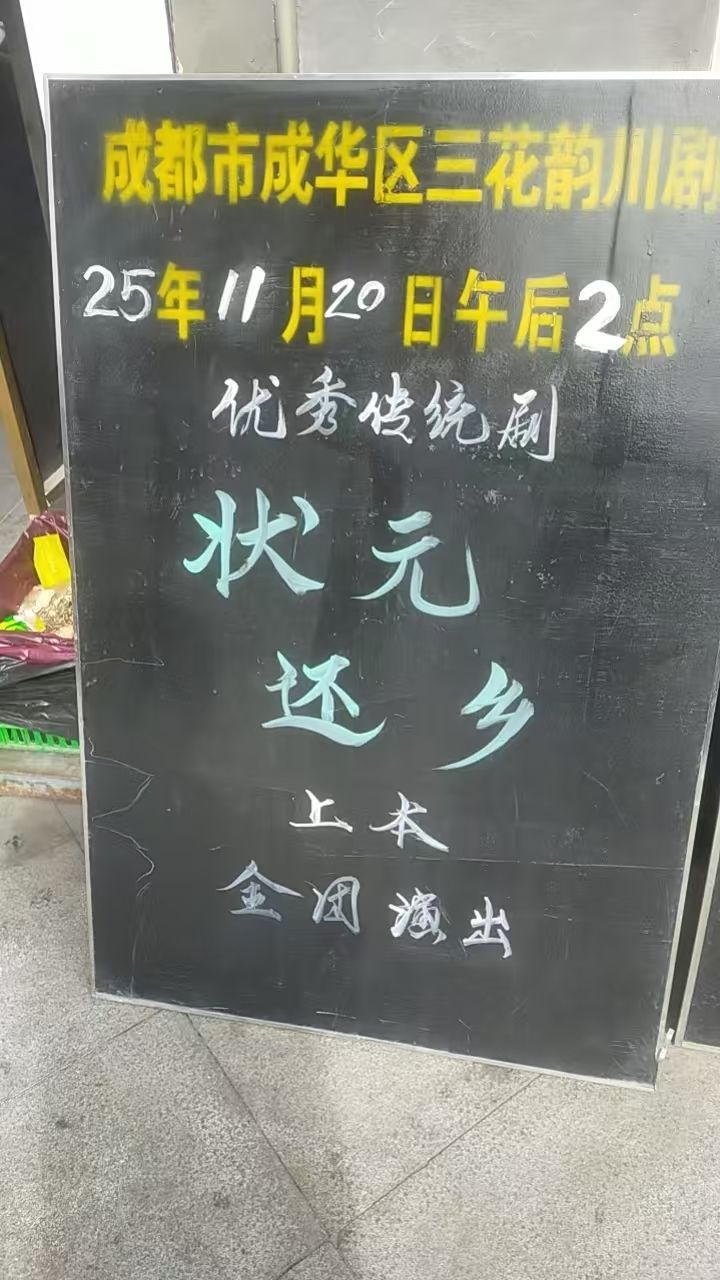 成都市成华区三花韵川剧
25年11月20日午后2点
优秀传统剧
状元
还乡
上本
全团演出